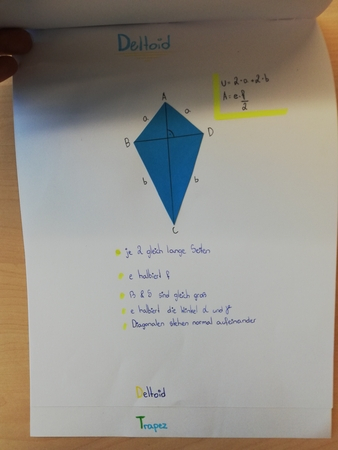 Deltoid
U = 2·a + 2·b
A = e·f/2
A
a
a
B
D
b
b
C
je 2 gleich lange Seiten
e halbiert f
β & δ sind gleich groß
e halbiert die Winkel α und γ
Diagonalen stehen normal aufeinander
Deltoid
Trapez